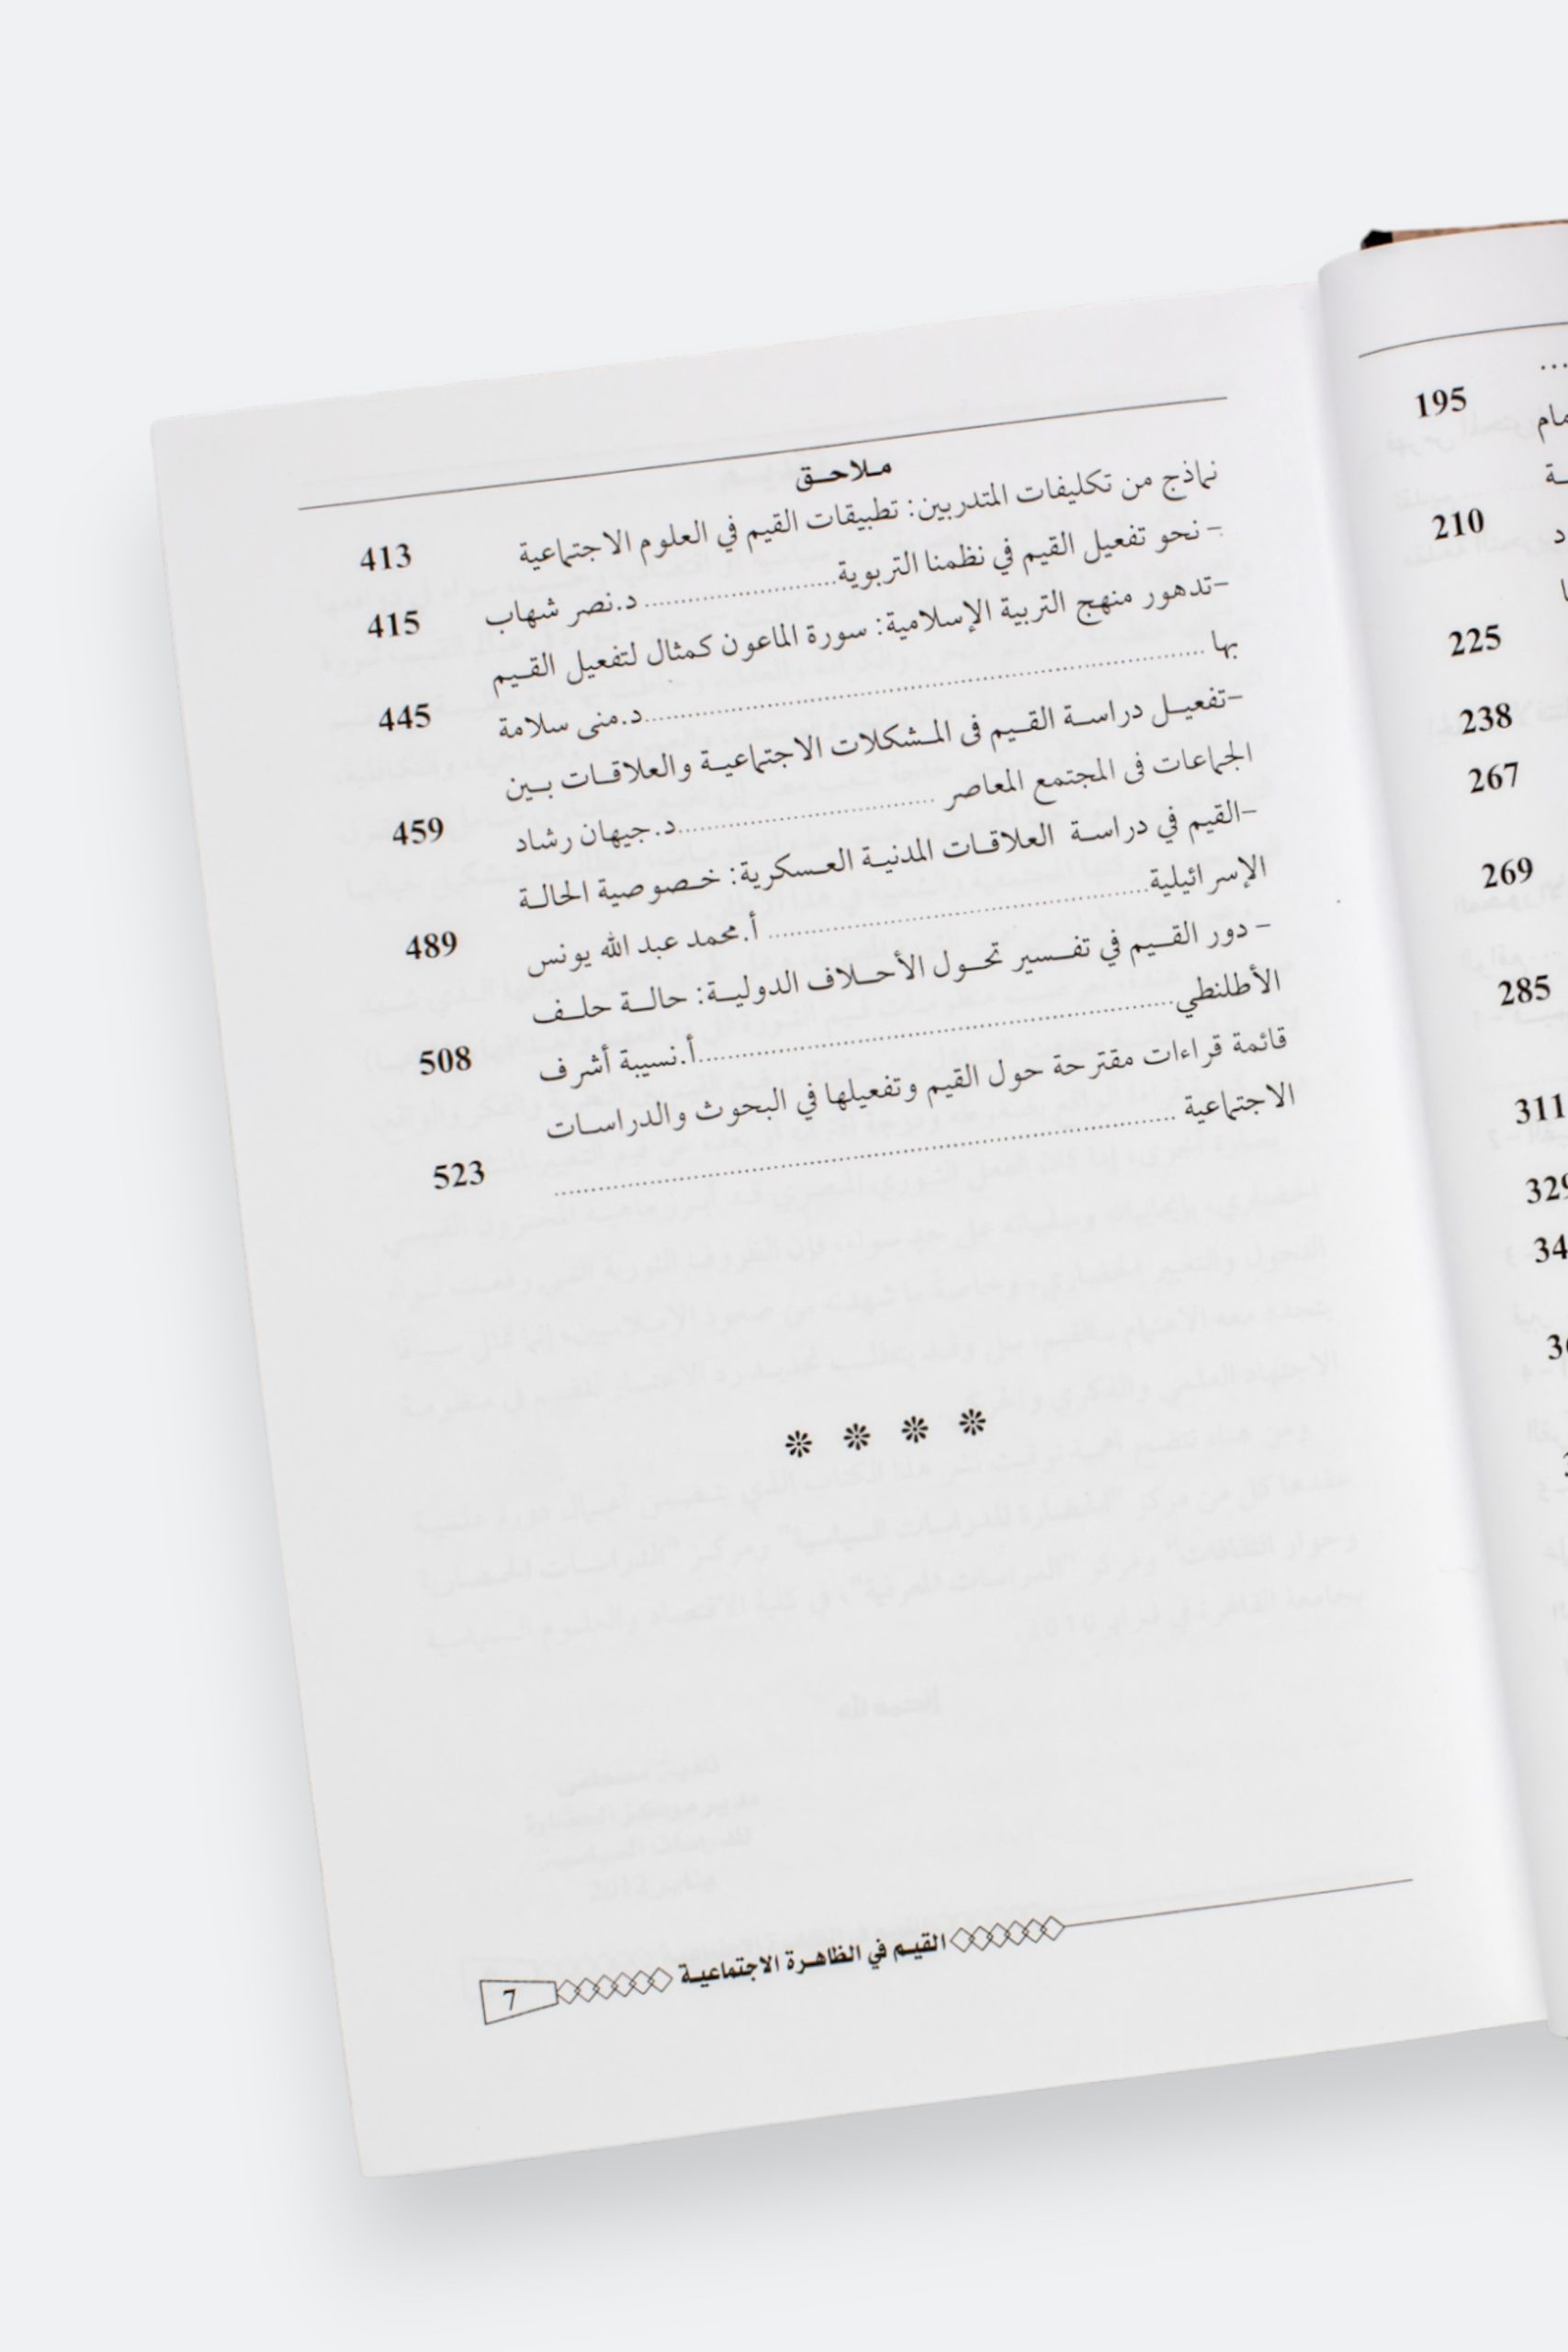 ملاحق
نماذج من تكليفات المتدربين: تطبيقات القيم في العلوم الاجتماعية 413
- نحو تفعيل القيم في نظمنا التربوية........................ د.نصر شهاب 415
-تدهور منهج التربية الإسلامية: سورة الماعون كمثال لتفعيل القيم
بها ........................................................د.منى سلامة 445
-تفعيل دراسة القيم فى المشكلات الاجتماعية والعلاقات بين
الجماعات فى المجتمع المعاصر ..............................د.جيهان رشاد 459
-القيم في دراسة العلاقات المدنية العسكرية: خصوصية الحالة
الإسرائيلية............................................. أ.محمد عبد الله يونس 489
- دور القيم في تفسير تحول الأحلاف الدولية: حالة حلف
الأطلنطي........................................................أ.نسيبة أشرف 508
قائمة قراءات مقترحة حول القيم وتفعيلها في البحوث والدراسات
الاجتماعية ........................................................................ 523
❊ ❊ ❊ ❊
القيم في الظاهرة الاجتماعية 7
195
210
225
238
267
269
285
311